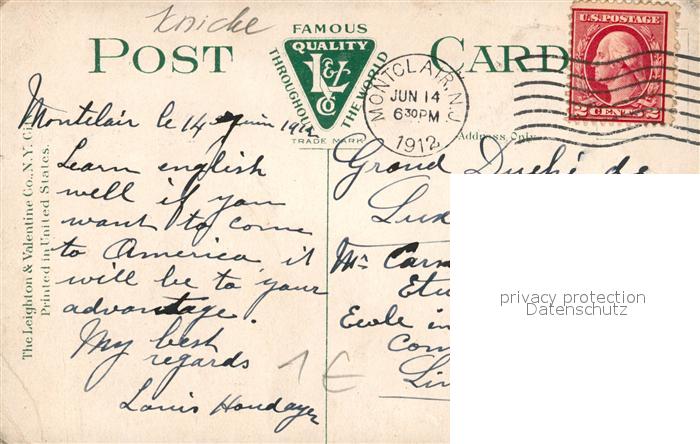 POST CARD
FAMOUS
QUALITY
L&V Co
THROUGHOUT THE WORLD
TRADE MARK
MONTCLAIR, N.J.
JUN 14
6 30 PM
1912
U.S. POSTAGE
2 CENTS 2
Address Only
The Leighton & Valentine Co., N.Y. Ci
Printed in United States.
Montclair le 14 juin 1912
Learn english
well if you
want to come
to America it
will be to your
advantage.
My best
regards
Louis
Grand Duché de
Lux
Mr
Etu
Ecole in
Com
Lim
1 €
privacy protection
Datenschutz